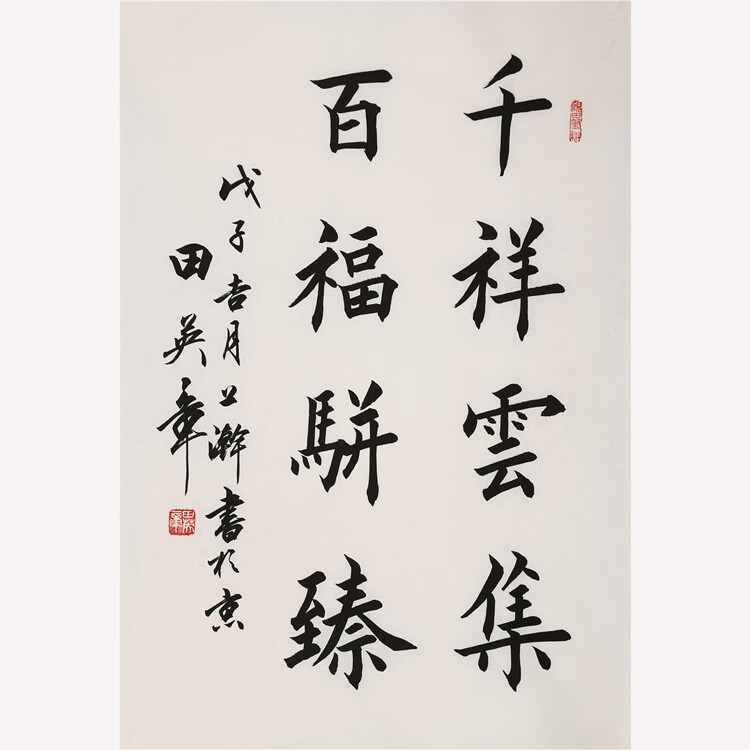 千祥雲集
百福駢臻
戊子吉月上澣書於京
田英章